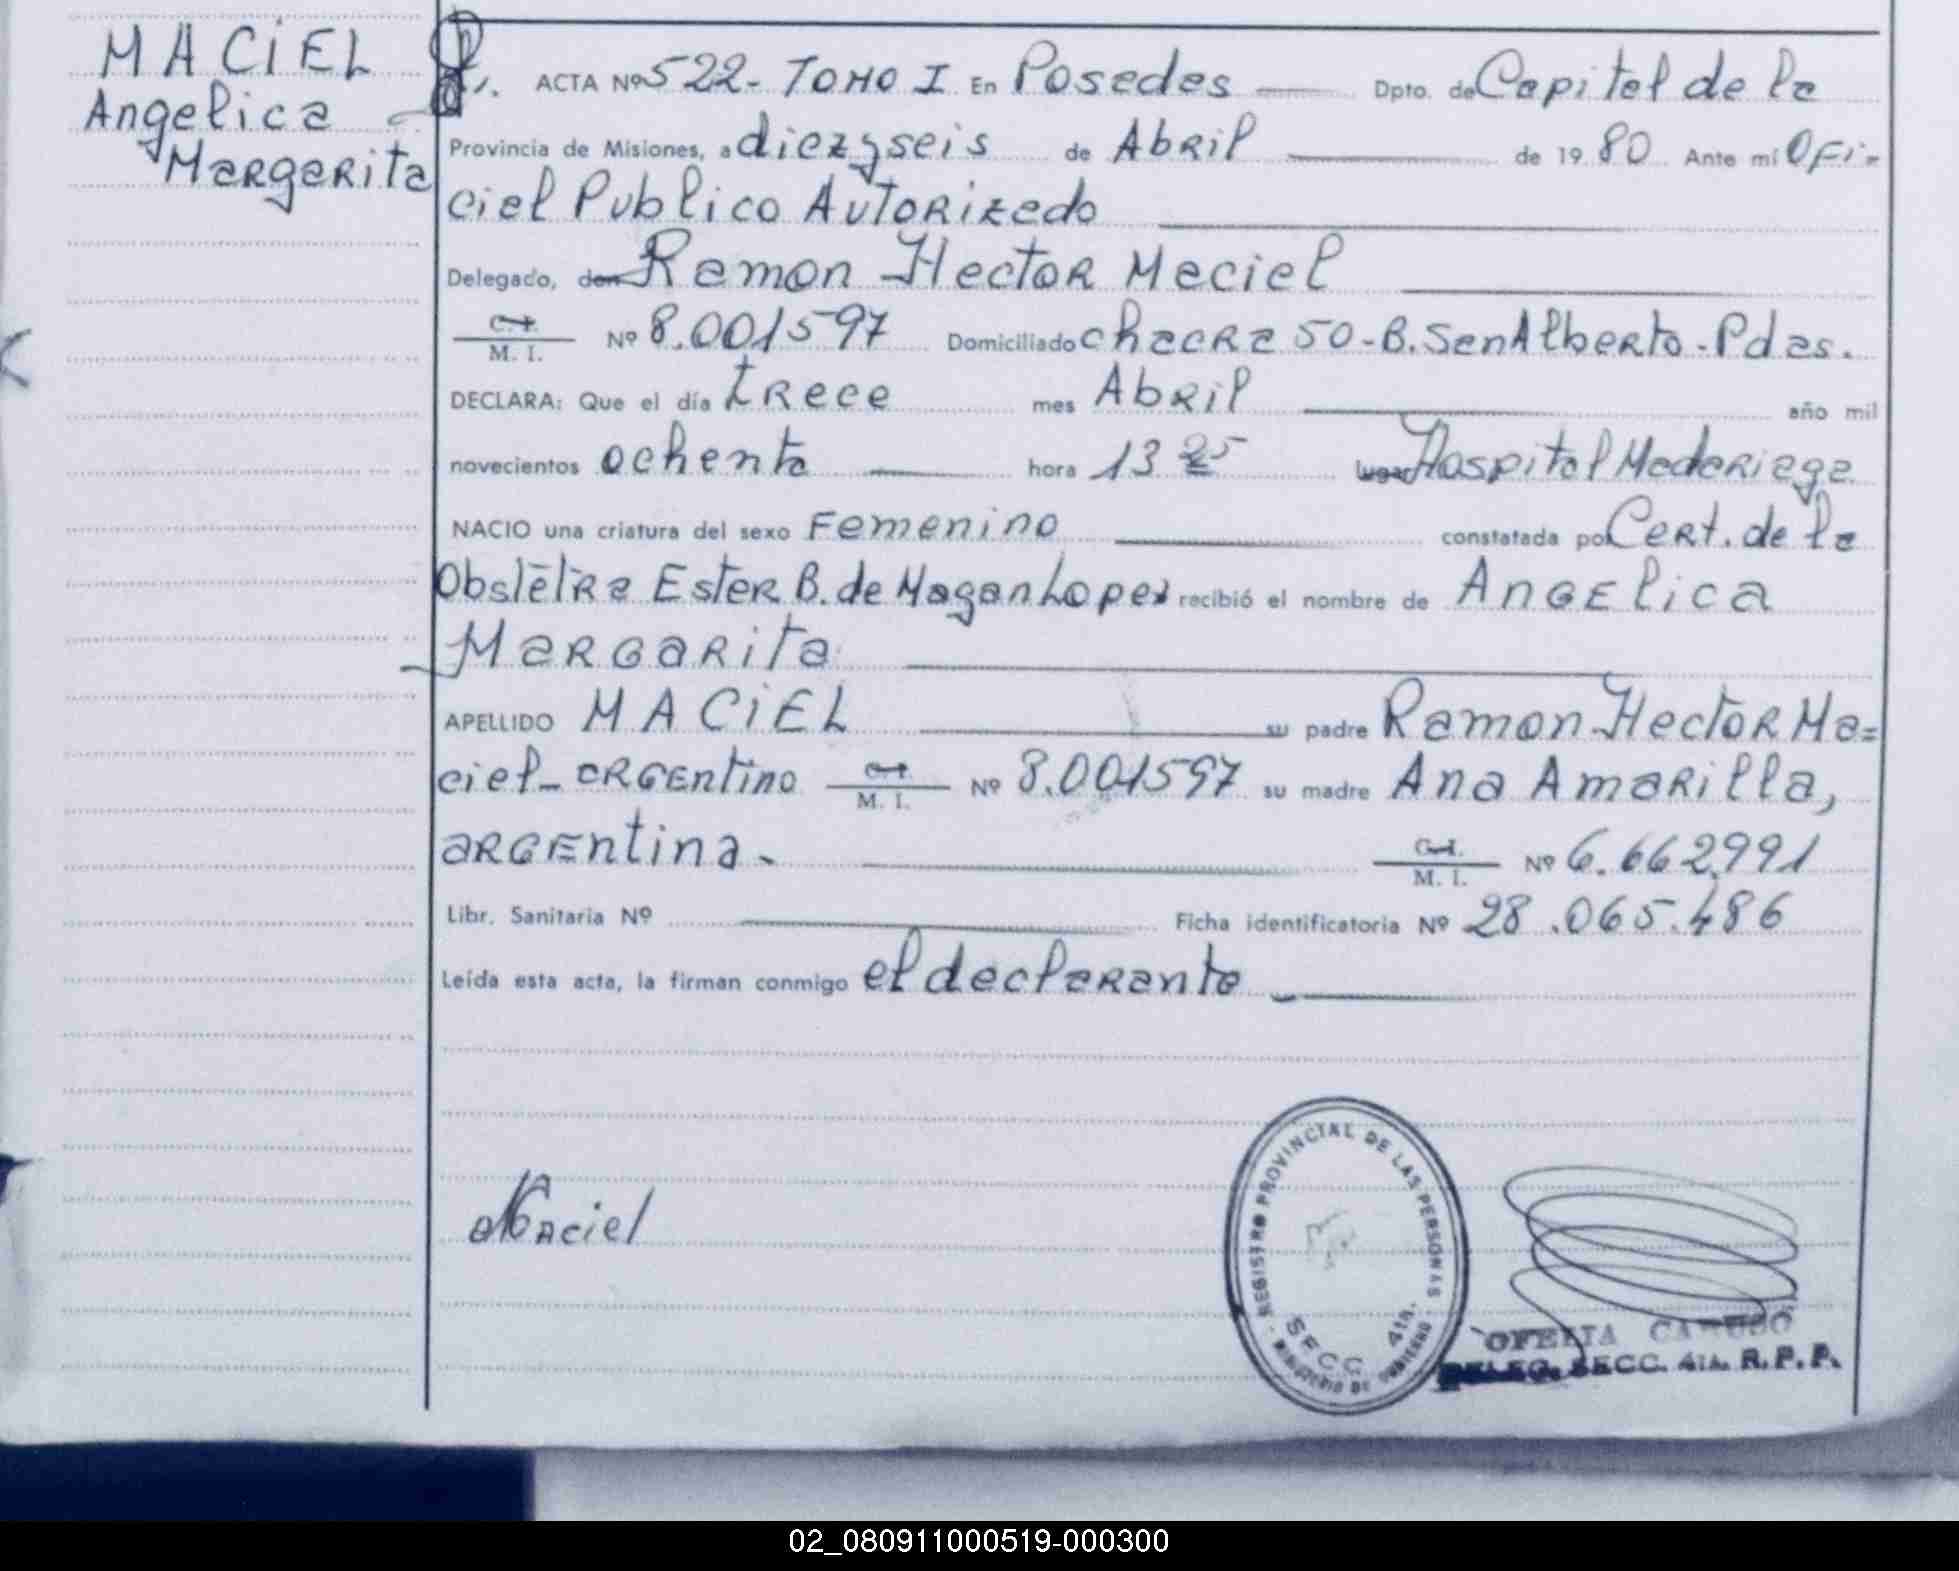 MACiEL
Angelica
Margarita
ACTA Nº 522- TOMO I En Posadas Dpto. de Capital de la
Provincia de Misiones, a diez y seis de Abril de 1980 Ante mí Ofi-
cial Publico Autorizado
Delegado, don Ramon Hector Maciel
C. I.
M. I. Nº 8.001597 Domiciliado chacra 50-B. San Alberto-Pdas.
DECLARA: Que el día trece mes Abril año mil
novecientos ochenta hora 13 25 lugar Hospital Madariaga
NACIO una criatura del sexo Femenino constatada por Cert. de la
Obstétra Ester B. de Magan Lopez recibió el nombre de Angelica
Margarita
APELLIDO MACiEL su padre Ramon Hector Ma=
ciel- argentino C. I. M. I. Nº 8.001597 su madre Ana Amarilla,
argentina- C. I. M. I. Nº 6.662.991
Libr. Sanitaria Nº Ficha identificatoria Nº 28.065.486
Leída esta acta, la firman conmigo el declarante
Maciel
REGISTRO PROVINCIAL DE LAS PERSONAS
SECC. 4ta.
MINISTERIO DE GOBIERNO
OFELIA CARUSO
DELEG. SECC. 4ta. R.P.P.
02_080911000519-000300